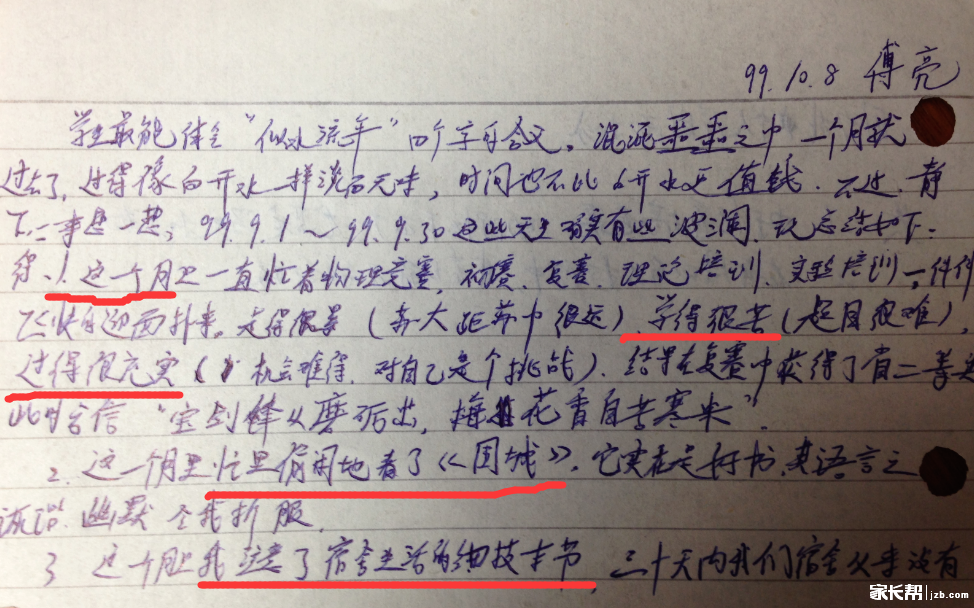 99.10.8 傅亮
学生最能体会“似水流年”四个字的含义。混混噩噩之中一个月就
过去了，过得像白开水一样淡而无味，时间也不比白开水更值钱。不过，静
下心来想一想，99.9.1～99.9.30这些天里确实有些波澜，现总结如下。
1、这一个月里一直忙着物理竞赛，初赛、复赛、理论培训、实验培训，一件件
飞快自迎面扑来。走得很累（苏大距苏中很远），学得很苦（题目很难），
过得很充实（机会难得，对自己是个挑战）。结果在复赛中获得了省二等奖
此时会信“宝剑锋从磨砺出，梅花香自苦寒来”
2、这一个月里忙里偷闲地看了《围城》。它实在是好书，其语言之
诙谐、幽默令我折服。
3 这个月里我注意了宿舍生活的细枝末节，三十天内我们宿舍从来没有
家长帮 jzb.com